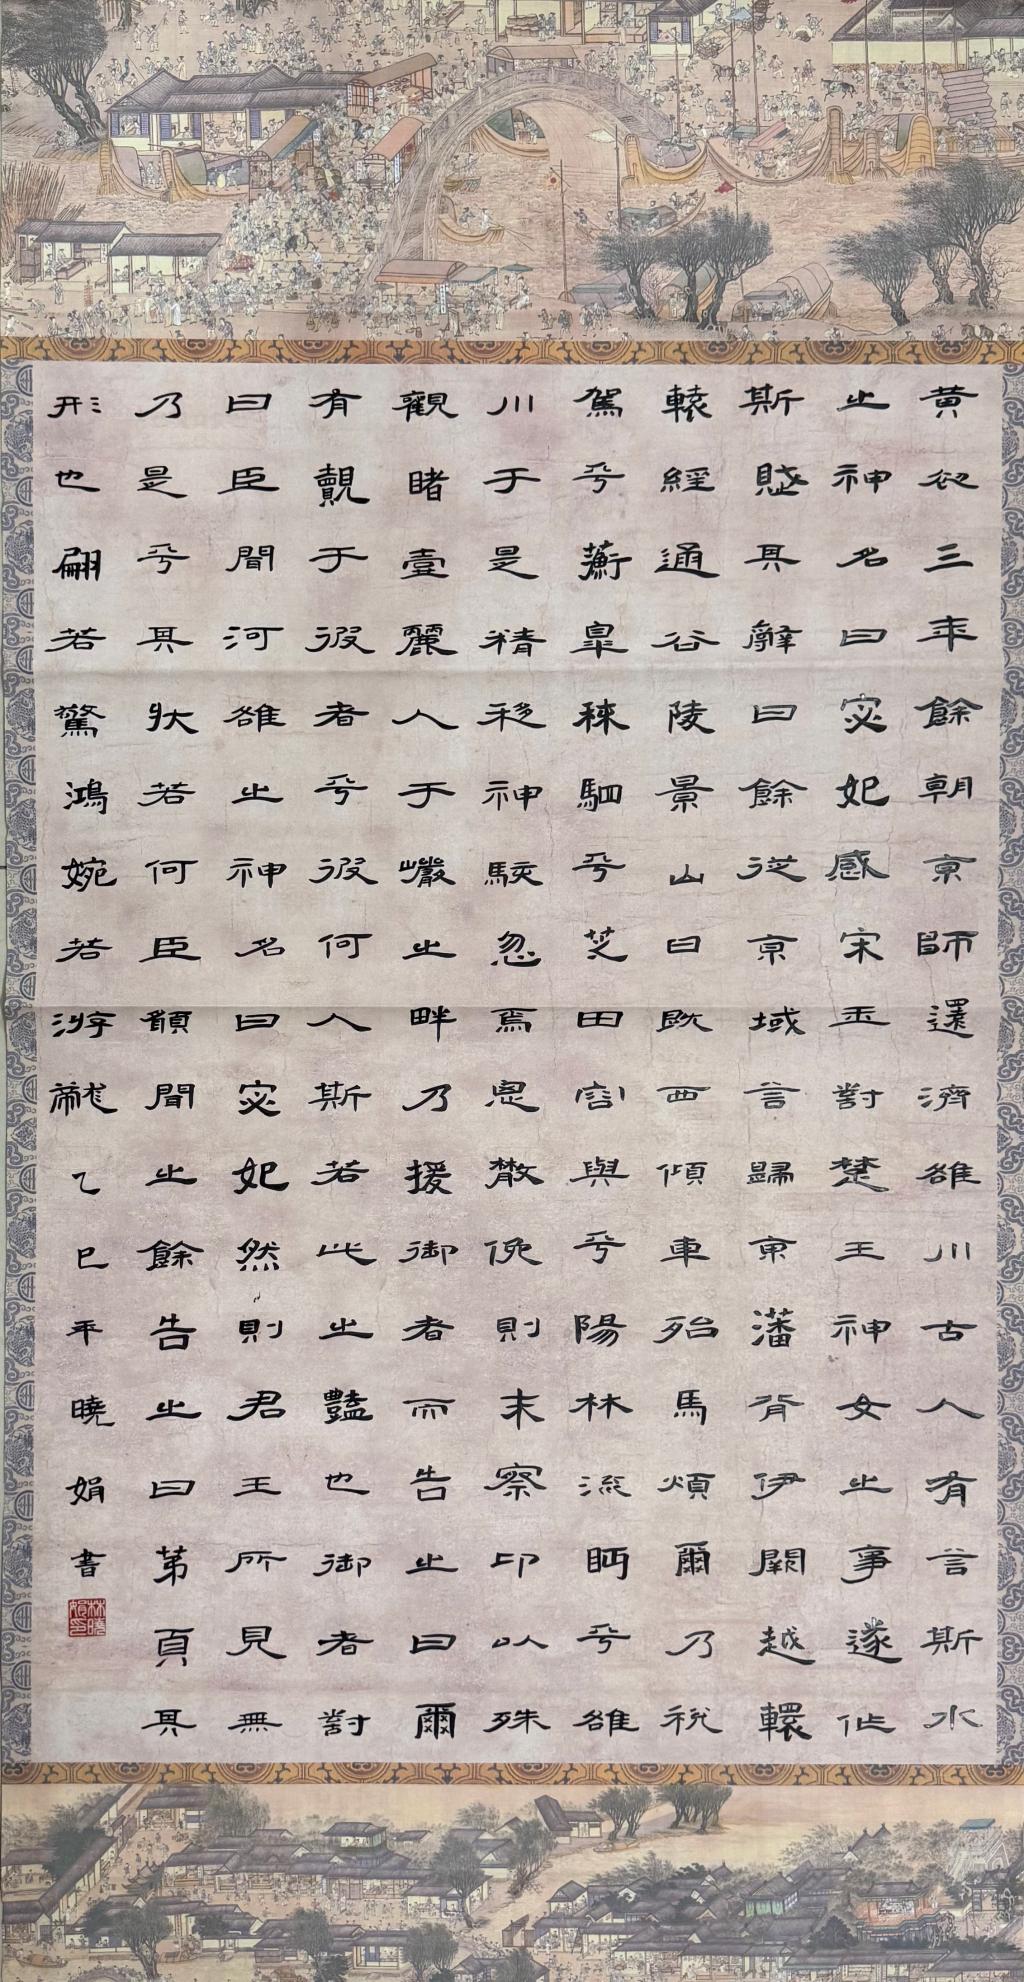 黃初三年餘朝京師還濟雒川古人有言斯水
之神名曰宓妃感宋玉對楚王神女之事遂作
斯賦其辭曰餘從京域言歸東藩背伊闕越轘
轅經通谷陵景山日既西傾車殆馬煩爾乃稅
駕乎蘅皋秣駟乎芝田容與乎陽林流眄乎雒
川于是精移神駭忽焉思散俛則未察卬以殊
觀睹壹麗人于巖之畔乃援御者而告之曰爾
有覿于彼者乎彼何人斯若此之豔也御者對
曰臣聞河雒之神名曰宓妃然則君王所見無
乃是乎其狀若何臣願聞之餘告之曰第頁其
形也翩若驚鴻婉若游龍乙巳年曉娟書
林曉娟印